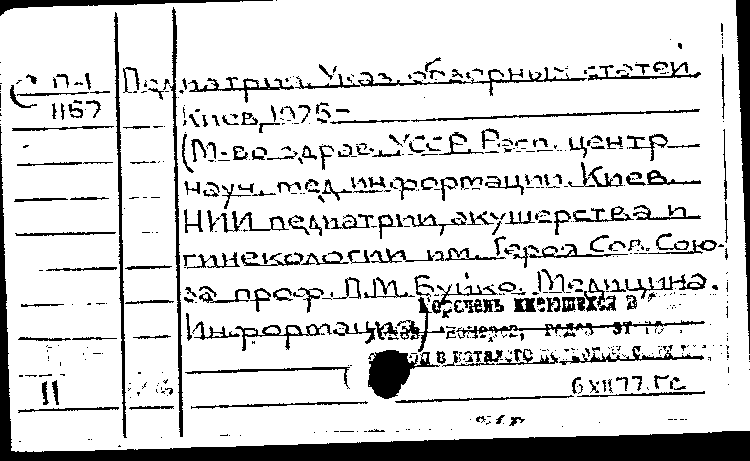 П-1 Педиатрия. Указ. обзорных статей.
1157 Киев, 1975-
(М-во здрав. УССР. Респ. центр
науч. мед. информации. Киев.
НИИ педиатрии, акушерства и
гинекологии им. Героя Сов. Сою-
за проф. П.М. Буйко. Медицина.
Информация)
Перечень имеющихся в
номеров,
в каталоге
II
6 XII 77. Гс